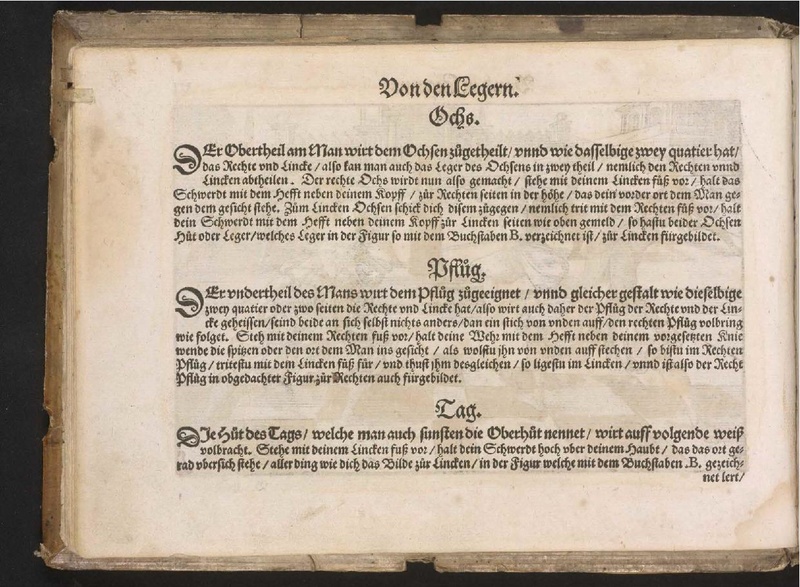 Von den Legern.
Ochs.
DEr Obertheil am Man wirt dem Ochsen zůgetheilt/ vnnd wie dasselbige zwey quatier hat/
das Rechte vnd Lincke/ also kan man auch das Leger des Ochsens in zwey theil/ nemlich den Rechten vnnd
Lincken abtheilen. Der rechte Ochs wirdt nun also gemacht/ stehe mit deinem Lincken fůß vor/ halt das
Schwerdt mit dem Hefft neben deinem Kopff/ zůr Rechten seiten in der höhe/ das dein vorder ort dem Man ge-
gen dem gesicht stehe. Zům Lincken Ochsen schick dich disem zůgegen/ nemlich trit mit dem Rechten fůß vor/ halt
dein Schwerdt mit dem Hefft neben deinem Kopff zůr Lincken seiten wie oben gemeld/ so hastu beider Ochsen
Hůt oder Leger/ welches Leger in der Figur so mit dem Buchstaben B. verzeichnet ist/ zůr Lincken fürgebildet.
Pflůg.
DEr vndertheil des Mans wirt dem Pflůg zůgeeignet/ vnnd gleicher gestalt wie dieselbige
zwey quatier oder zwo seiten die Rechte vnd Lincke hat/ also wirt auch daher der Pflůg der Rechte vnd der Lin-
cke geheissen/ seind beide an sich selbst nichts anders/ dan ein stich von vnden auff/ den rechten Pflůg volbring
wie folget. Steh mit deinem Rechten fůß vor/ halt deine Wehr mit dem Hefft neben deinem vorgesetzten Knie
wende die spitzen oder den ort dem Man ins gesicht/ als wolstu jhn von vnden auff stechen/ so bistu im Rechten
Pflůg/ tritestu mit dem Lincken fůß für/ vnd thust jhm desgleichen/ so ligestu im Lincken/ vnnd ist also der Recht
Pflůg in obgedachter Figur zůr Rechten auch fürgebildet.
Tag.
DJe Hůt des Tags/ welche man auch sunsten die Oberhůt nennet/ wirt auff volgende weiß
volbracht. Stehe mit deinem Lincken fůß vor/ halt dein Schwerdt hoch vber deinem Haubt/ das das ort ge-
rad vbersich stehe/ aller ding wie dich das Bilde zůr Lincken/ in der Figur welche mit dem Buchstaben .B. gezeich-
net lert/